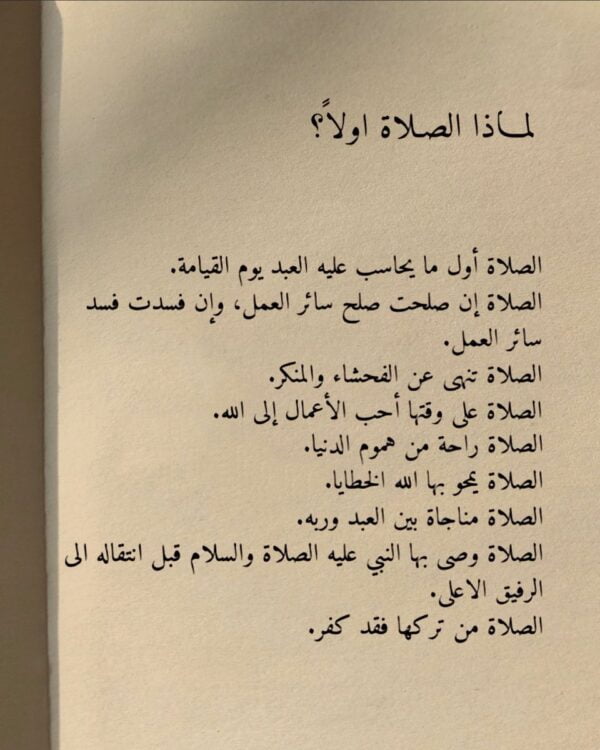 لماذا الصلاة اولاً؟
الصلاة أول ما يحاسب عليه العبد يوم القيامة.
الصلاة إن صلحت صلح سائر العمل، وإن فسدت فسد
سائر العمل.
الصلاة تنهى عن الفحشاء والمنكر.
الصلاة على وقتها أحب الأعمال إلى الله.
الصلاة راحة من هموم الدنيا.
الصلاة يمحو بها الله الخطايا.
الصلاة مناجاة بين العبد وربه.
الصلاة وصى بها النبي عليه الصلاة والسلام قبل انتقاله الى
الرفيق الاعلى.
الصلاة من تركها فقد كفر.